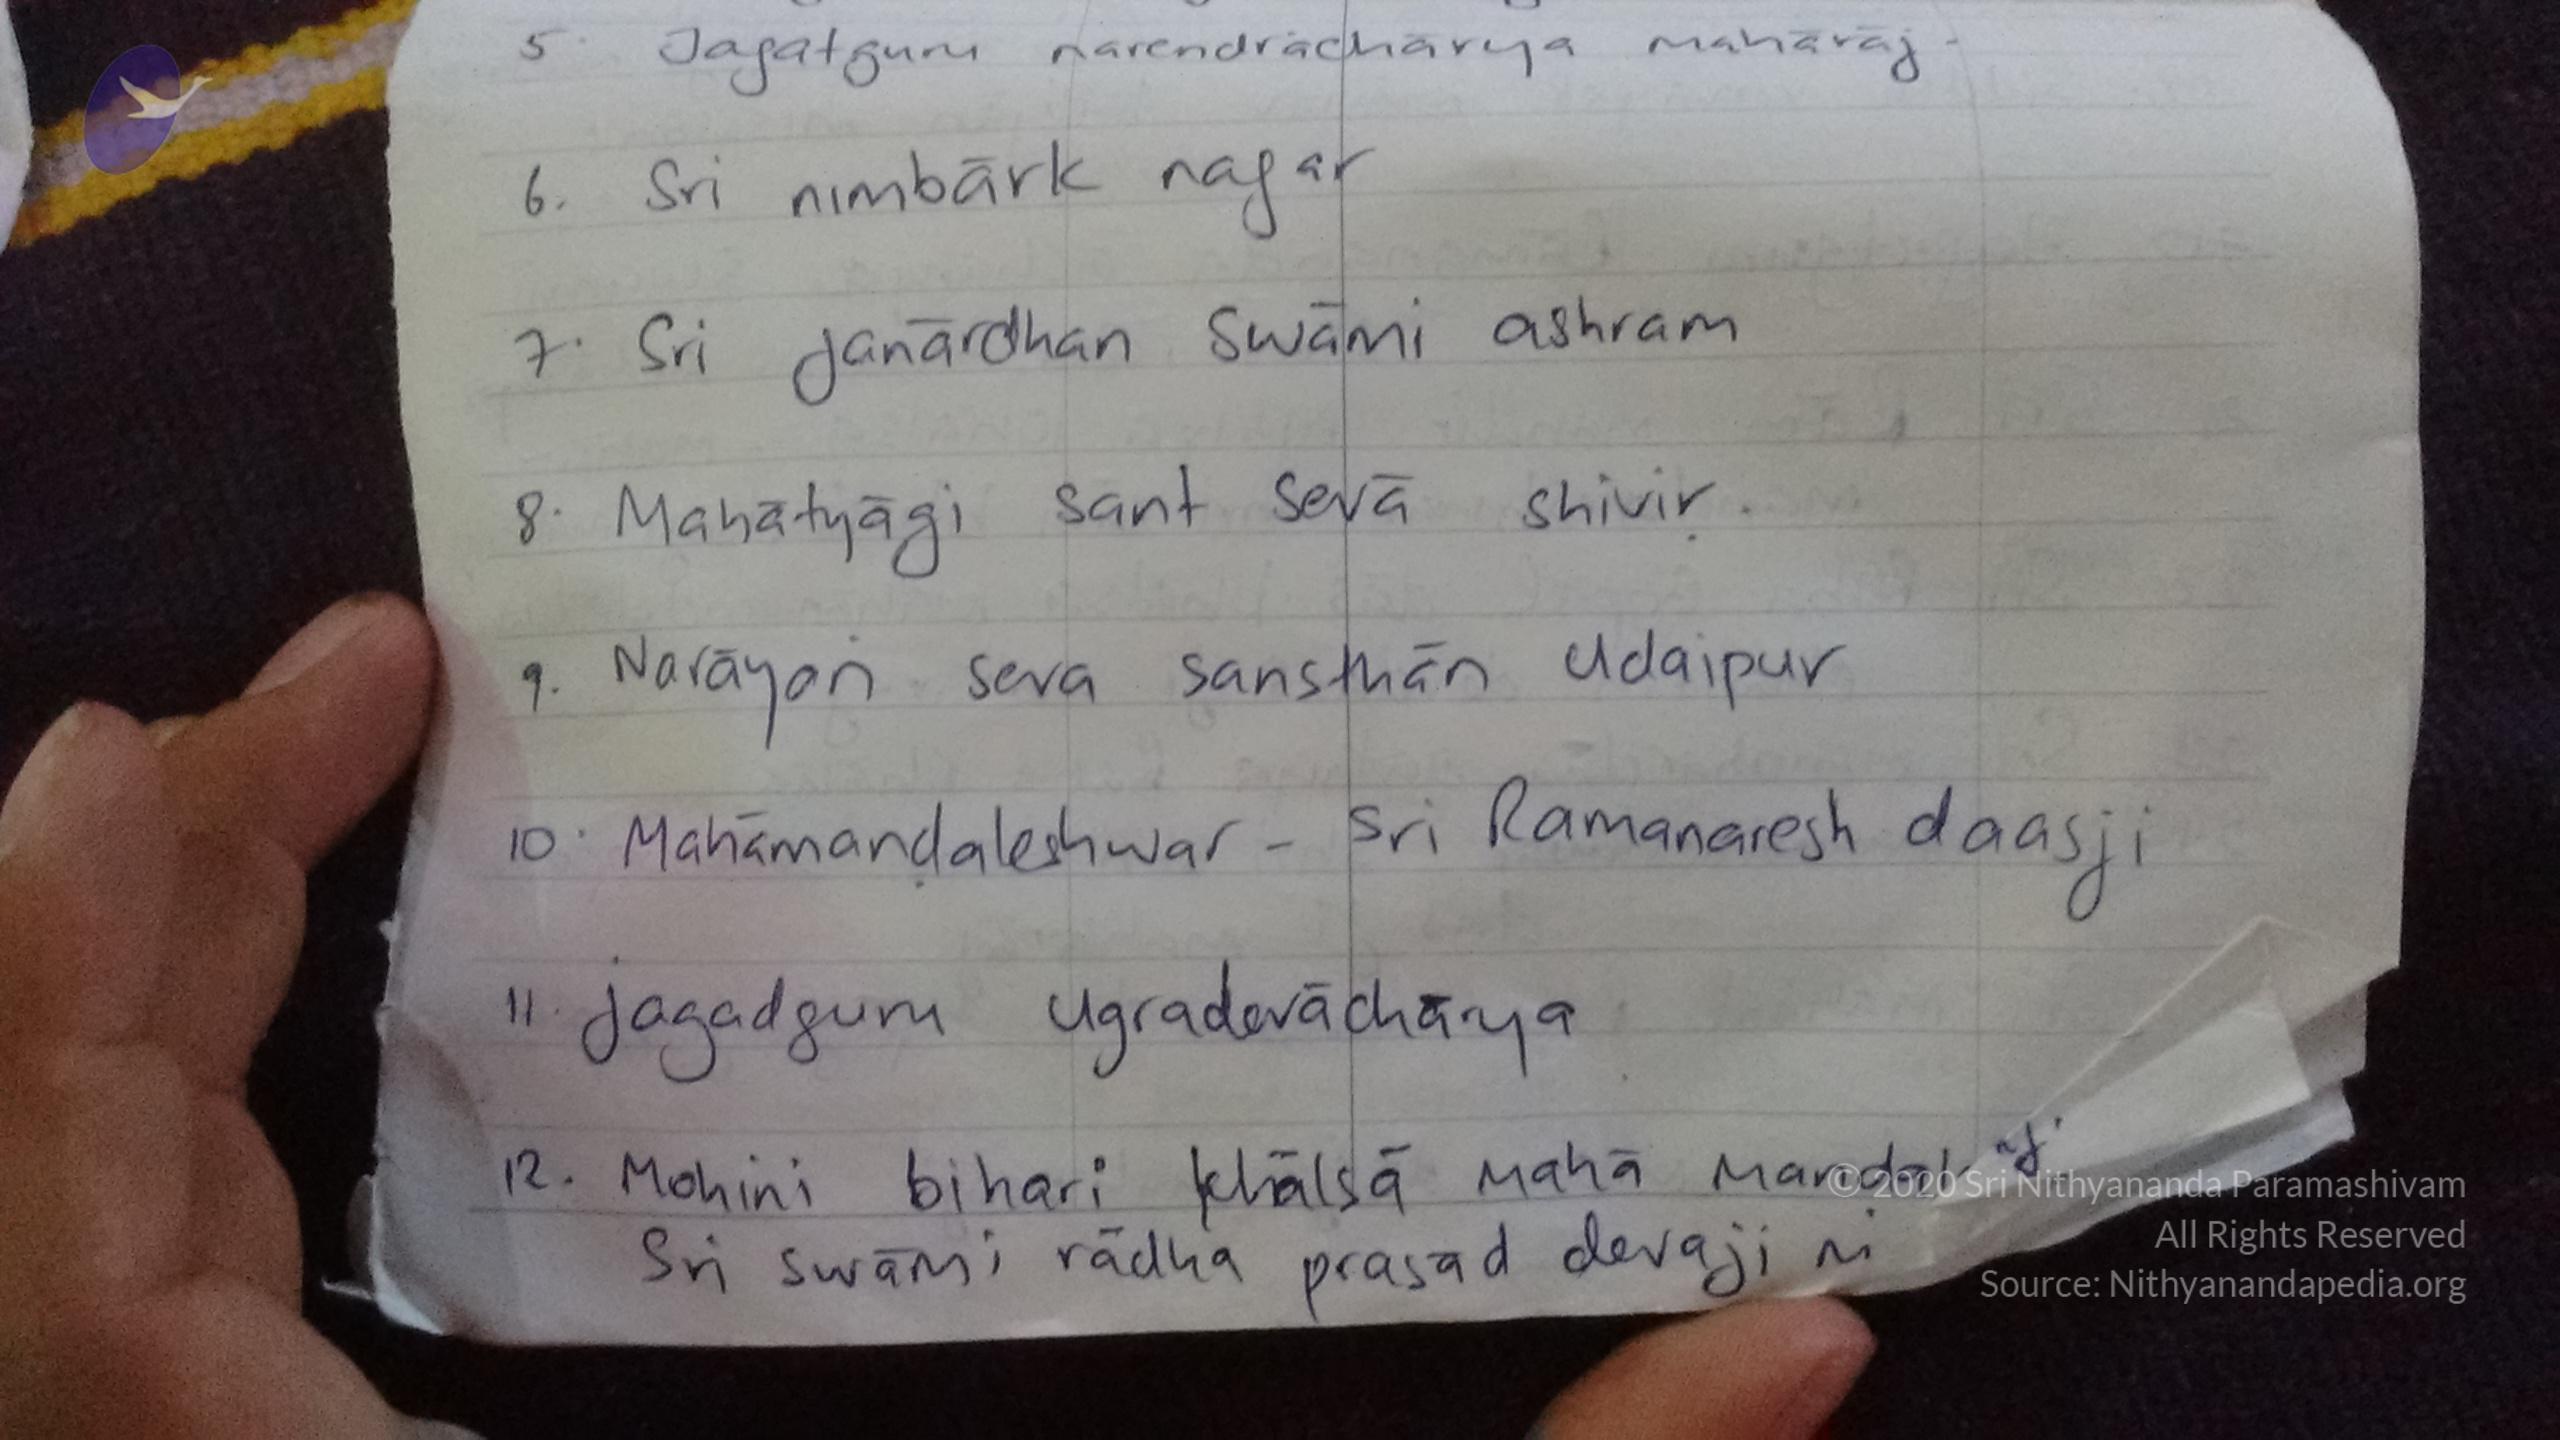 5. Jagatguru narendrāchārya mahārāj.
6. Sri nimbārk nagar
7. Sri janārdhan Swāmi ashram
8. Mahātyāgi sant sevā shivir.
9. Narāyaṅ seva sansthān Udaipur
10. Mahāmanḍaleshwar - Sri Ramanaresh daasji
11. jagadguru ugradevāchārya
12. Mohini bihari khālsā Mahā
Sri swāmi rādha prasad devaji
© 2020 Sri Nithyananda Paramashivam
All Rights Reserved
Source: Nithyanandapedia.org